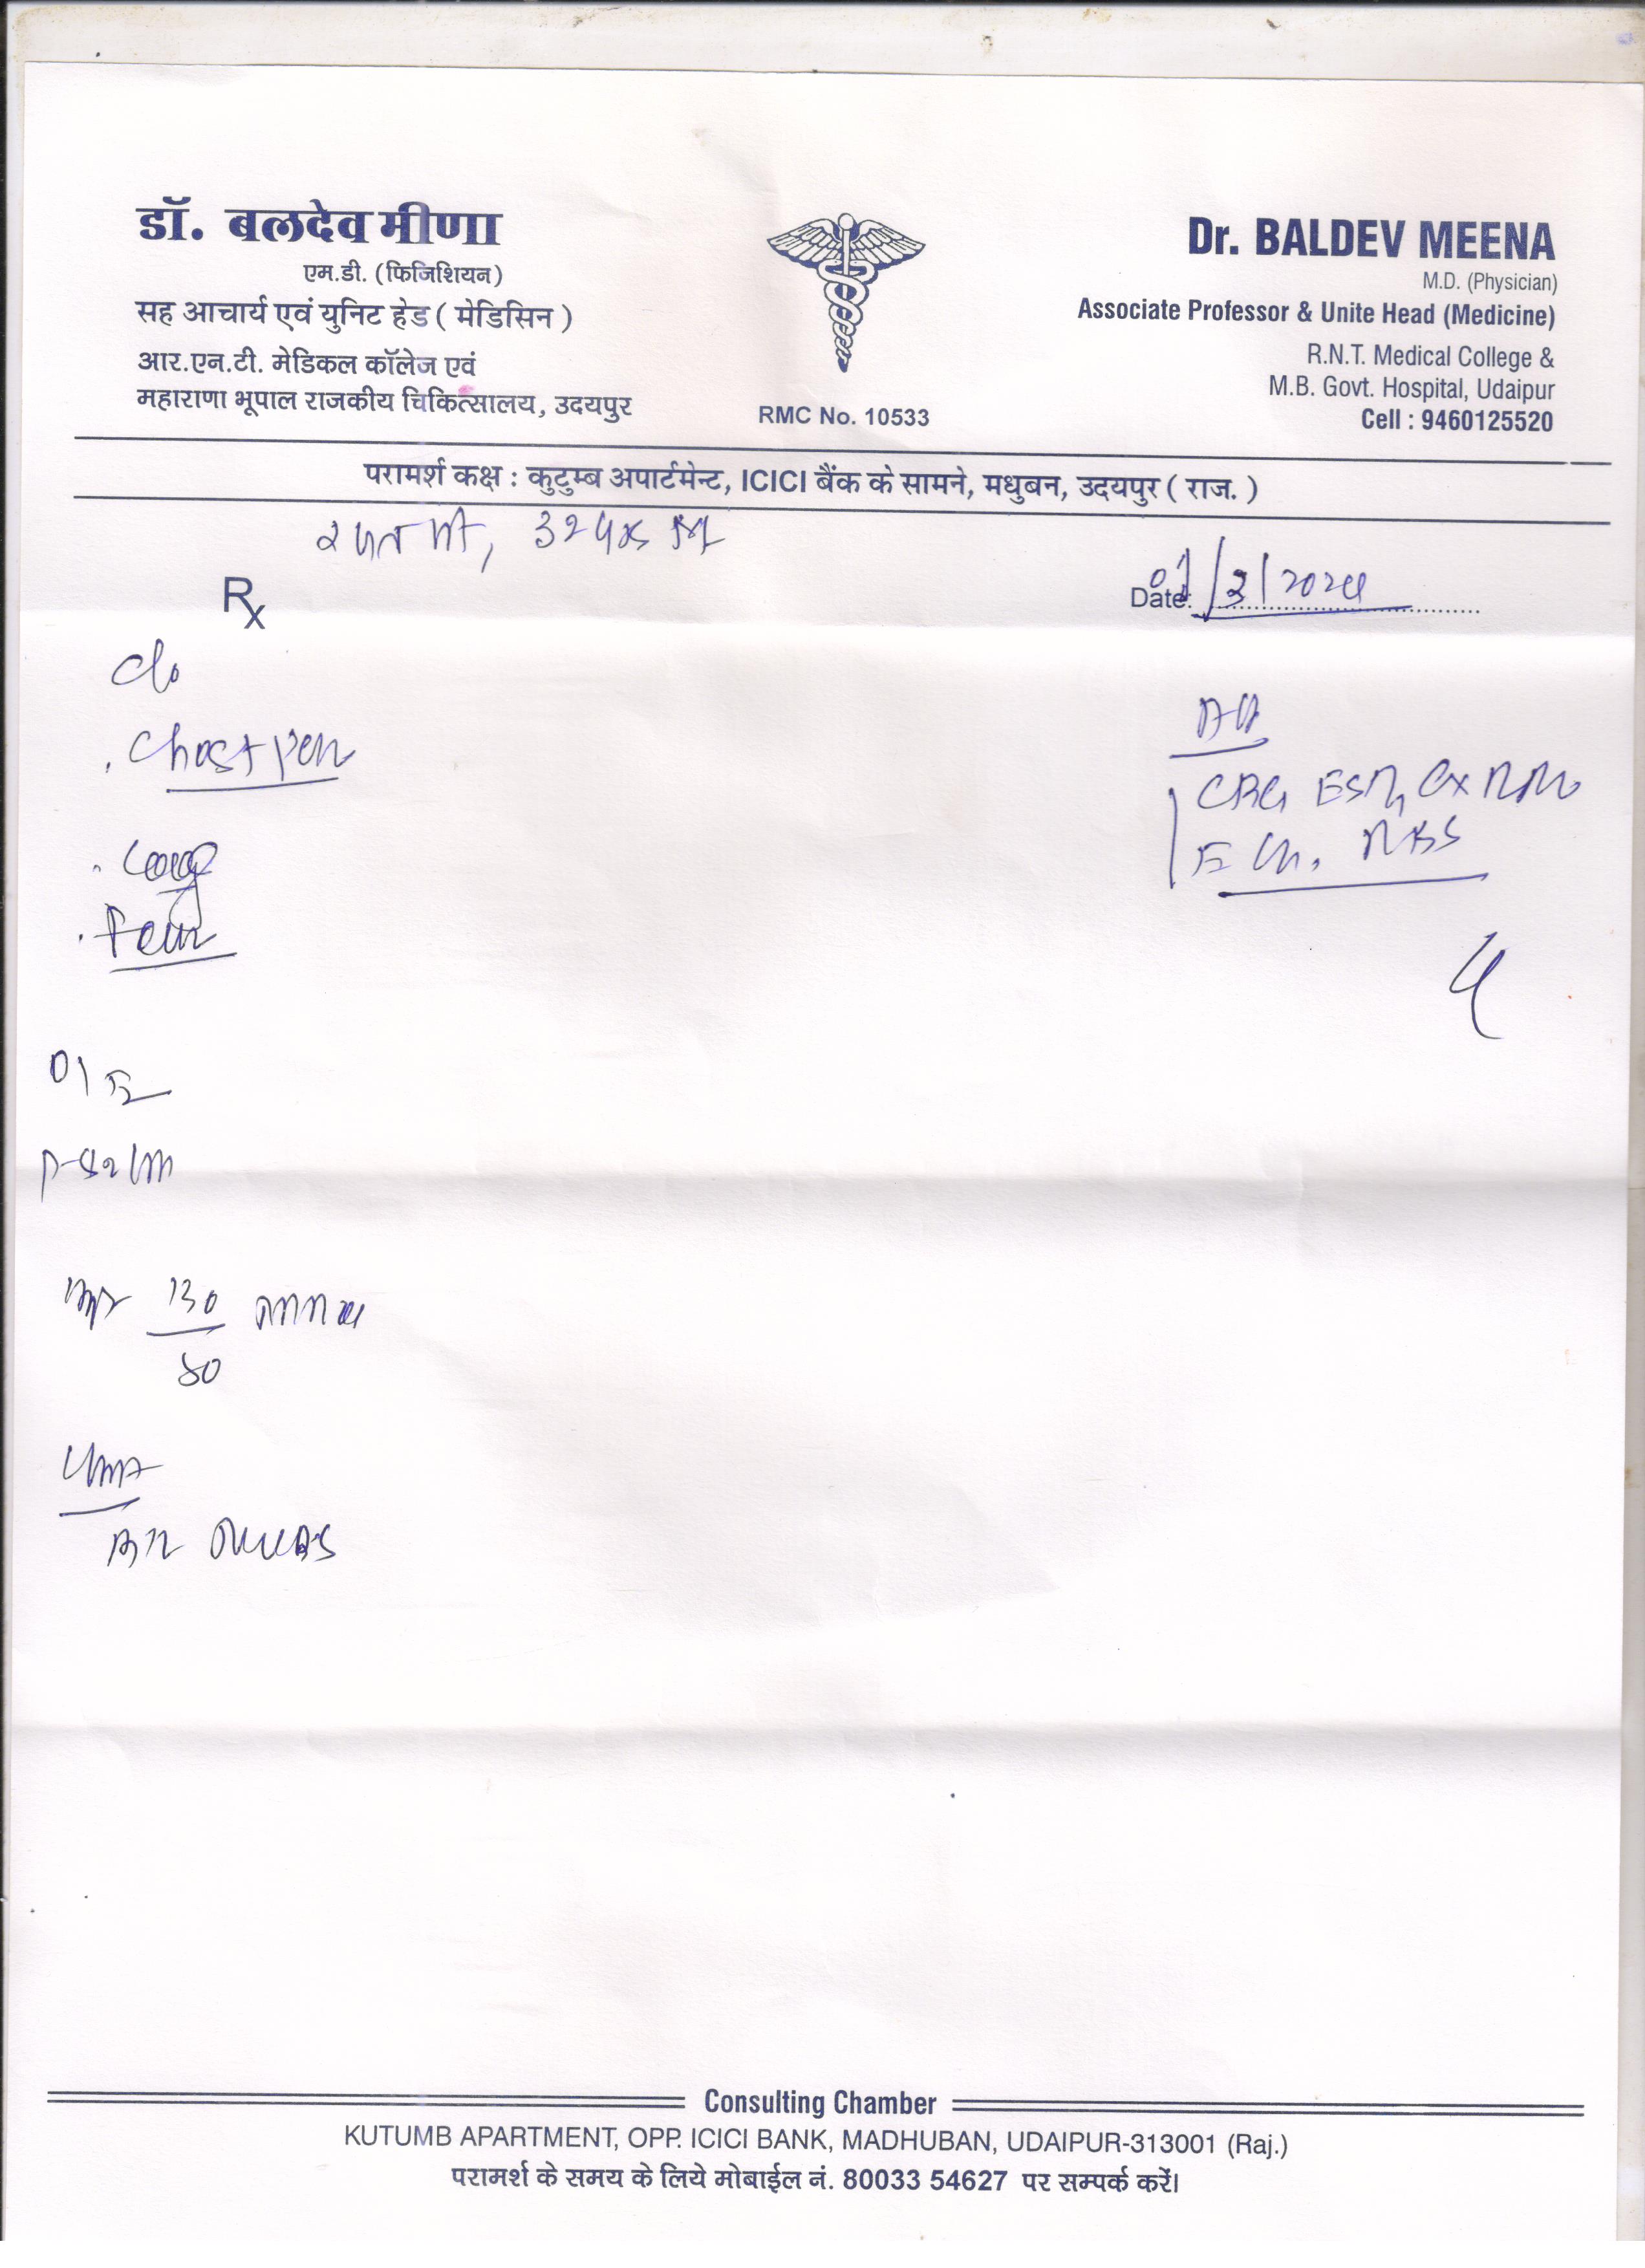 डॉ. बलदेव मीणा
एम.डी. (फिजिशियन)
सह आचार्य एवं युनिट हेड ( मेडिसिन )
आर.एन.टी. मेडिकल कॉलेज एवं
महाराणा भूपाल राजकीय चिकित्सालय, उदयपुर
RMC No. 10533
Dr. BALDEV MEENA
M.D. (Physician)
Associate Professor & Unite Head (Medicine)
R.N.T. Medical College &
M.B. Govt. Hospital, Udaipur
Cell : 9460125520
परामर्श कक्ष : कुटुम्ब अपार्टमेन्ट, ICICI बैंक के सामने, मधुबन, उदयपुर ( राज. )
Rx
Date: /3/2024
C/o
Chest pain
Cough
Fever
CBC, ESR, CXR
RBS
O/E
130
80
Consulting Chamber
KUTUMB APARTMENT, OPP. ICICI BANK, MADHUBAN, UDAIPUR-313001 (Raj.)
परामर्श के समय के लिये मोबाईल नं. 80033 54627 पर सम्पर्क करें।